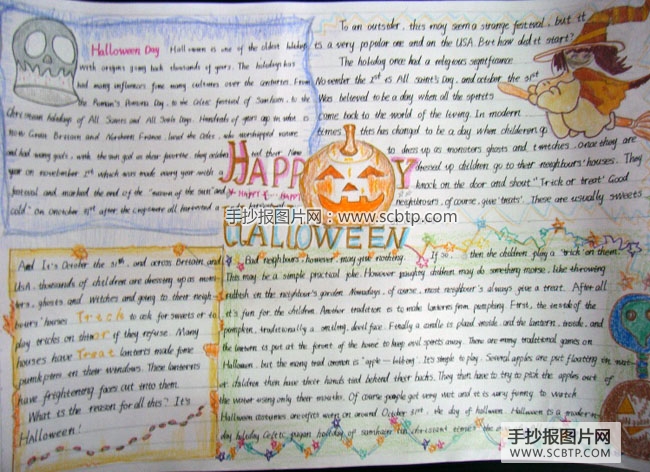 Halloween Day Halloween is one of the oldest holidays
with origins going back thousands of years. The holidays has
had many influences from many cultures over the centuries. From
the Roman's Pomona Day, to the Celtic festival of Samhain, to the
Christian holidays of All Saints and All Souls Days. Hundreds of years ago in what is
now Great Britain and Northern France, lived the Celts, who worshipped nature
and had many gods, with the sun god as their favorite. They celebrated their New
year on november 1st which was made every year with
festival and marked the end of the "season of the sun" and
cold" on October 31st after the crops were all harvested a
To an outsider, this may seem a strange festival, but it
is a very popular one and on the USA. But how did it start?
The holiday once had a religious significance
November the 1st is All Saint's Day, and october the 31st
Was believed to be a day when all the spirits
come back to the world of the living. In modern
times this has changed to be a day when children go
to dress up as monsters ghosts and twitches. Once they are
dressed up children go to their neighbours' houses. They
knock on the door and shout "Trick or treat" Good
neighbours, of course, give 'treats'. These are usually sweets
HAPPY
HAPPY HAPPY
手抄报图片网：www.scbtp.com
HALLOWEEN
And It's October the 31st, and across Britain and
USA, thousands of children are dressing up as mons-
ters, ghosts and witches and going to their neigh-
bours' houses Trick to ask for sweets or to
play tricks on them or if they refuse. Many
houses have Treat lanterns made from
pumkpins in their windows. These lanterns
have frightening faces cut into them.
What is the reason for all this? It's
Halloween!
Bad neighbours, however, may give nothing. If so, then the children play a 'trick' on them.
This may be a simple practical joke. However naughty children may do something worse, like throwing
rubbish in the neighbour's garden. Nowadays, of course, most neighbour's always give a treat. After all
it's fun for the children. Another tradition is to make lanterns from pumpking. First, the inside of the
pumpkin, traditionally a smiling, devil face. Finally a candle is placed inside and the lantern, inside, and
the lantern is put at the front of the house to keep evil spirits away. There are many traditional games on
Halloween, but the many trad common is "apple-bobbing". It's simple to play. Several apples are put floating in wat-
er children then have their hands tied behind their backs. They then have to try to pick the apples out of
the water using only their mouths. Of course people get very wet and it is very funny to watch
Halloween costumes are often worn on around October 31st, the day of halloween. Halloween is a modern-
day holiday Celtic pagan holiday of samhain (in christian times the
手抄报图片网
WWW.SCBTP.COM